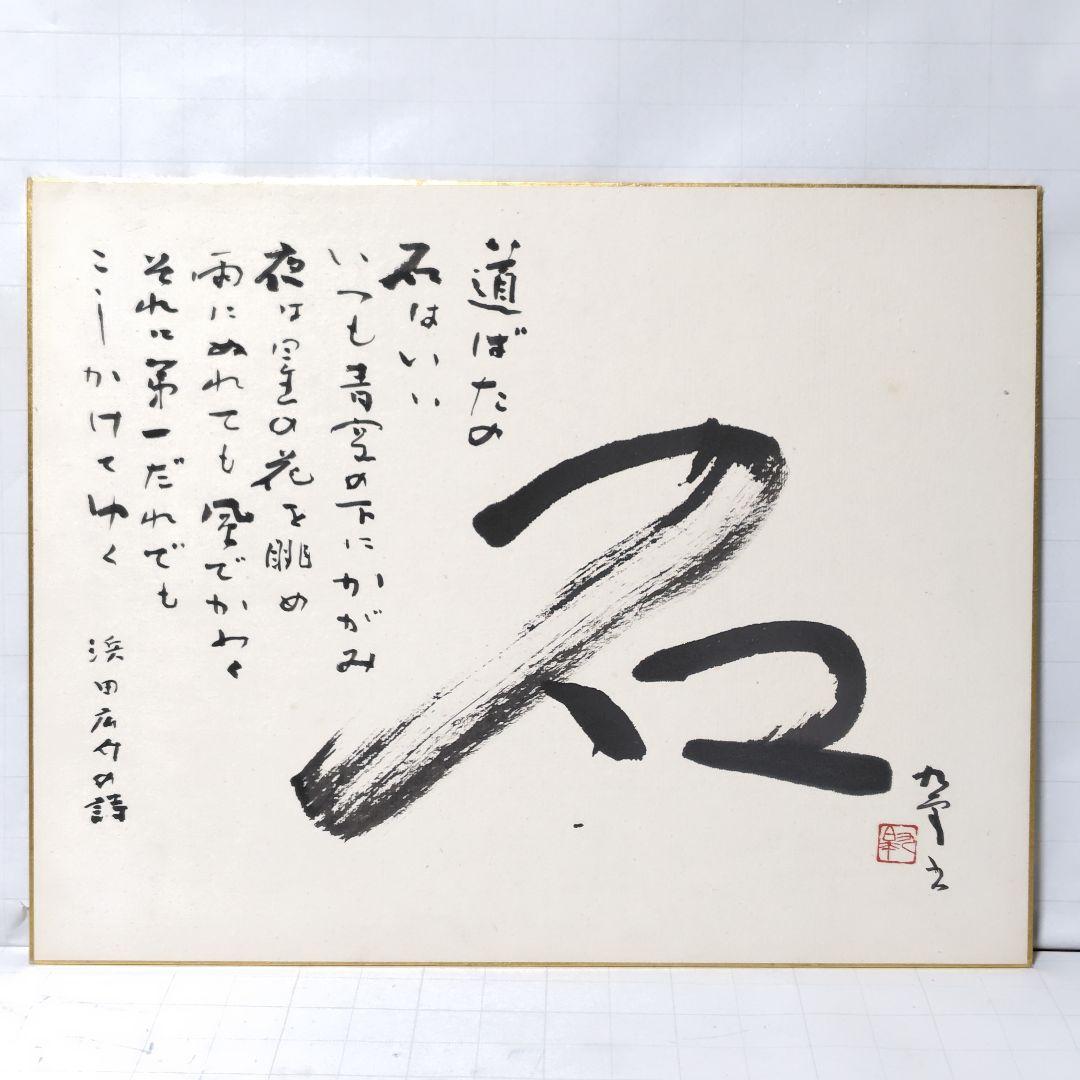 道ばたの
石はいい
いつも青空の下にかがみ
夜は星の花を眺め
雨にぬれても風でかわく
それに第一だれでも
こしかけてゆく
浜田広介の詩
石